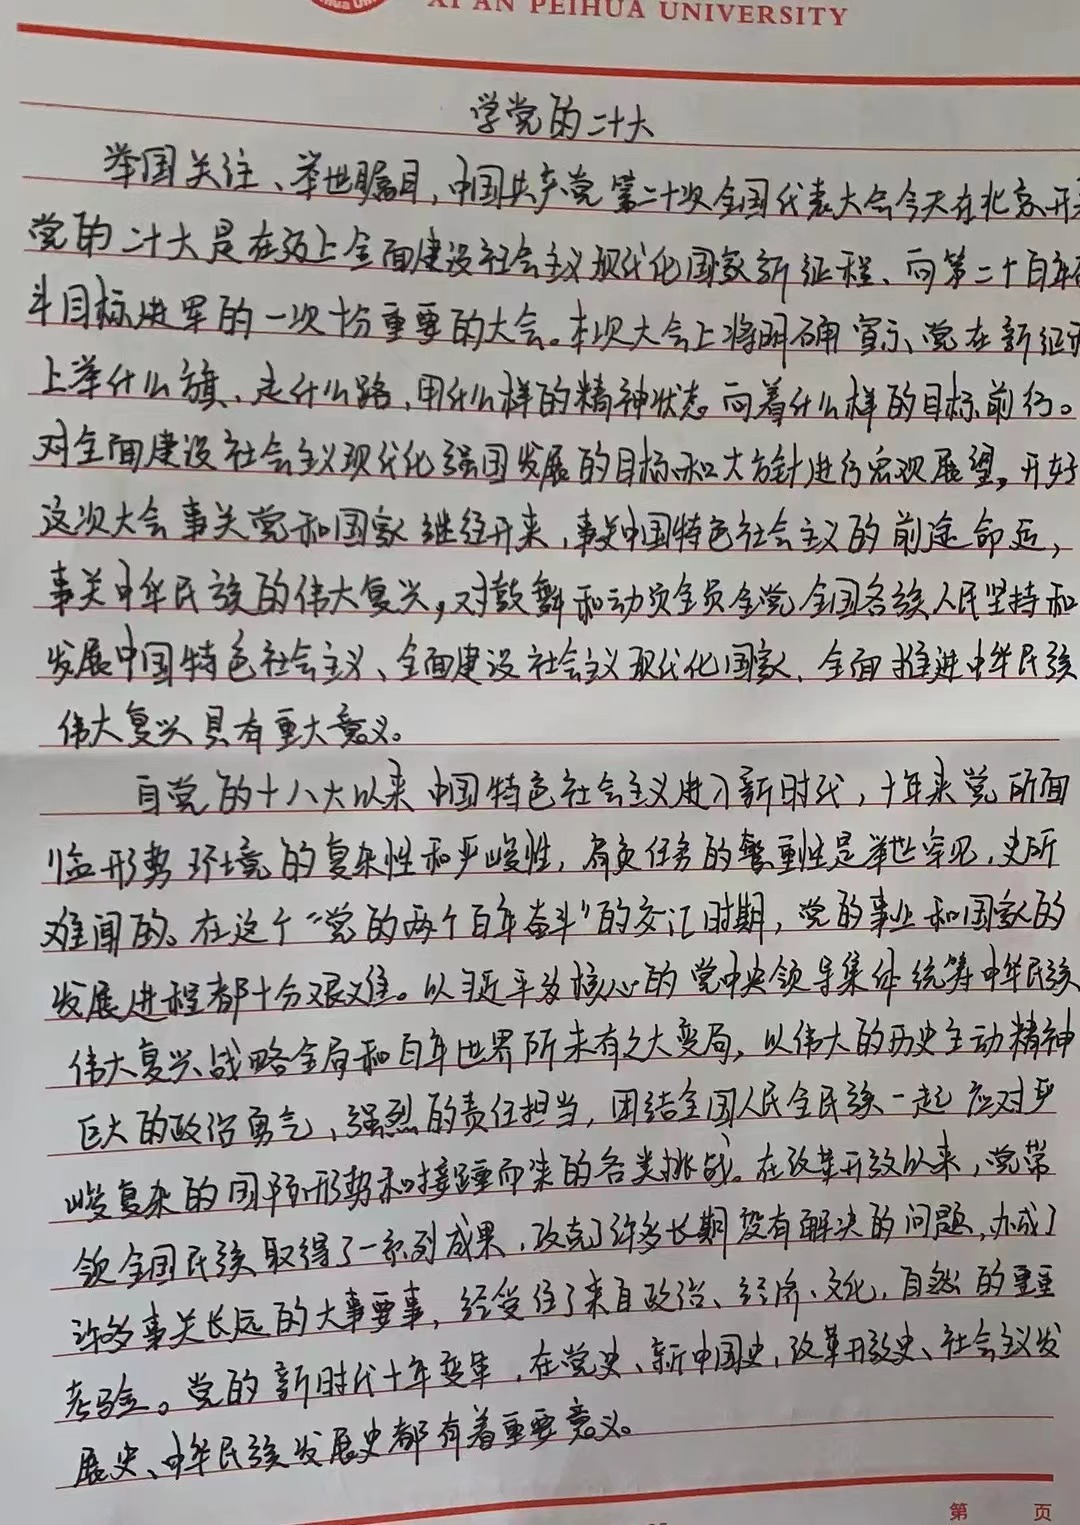 XI'AN PEIHUA UNIVERSITY
学党的二十大
举国关注、举世瞩目,中国共产党第二十次全国代表大会今天在北京开
党的二十大是在迈上全面建设社会主义现代化国家新征程、向第二个百年
斗目标进军的一次十分重要的大会。本次大会上将明确宣示、党在新征
上举什么旗、走什么路、用什么样的精神状态向着什么样的目标前行。
对全面建设社会主义现代化强国发展的目标和大方针进行宏观展望。开好
这次大会事关党和国家继往开来,事关中国特色社会主义的前途命运,
事关中华民族的伟大复兴,对鼓舞和动员全员全党全国各族人民坚持和
发展中国特色社会主义、全面建设社会主义现代化国家、全面推进中华民族
伟大复兴具有重大意义。
自党的十八大以来中国特色社会主义进入新时代,十年来党所面
临形势环境的复杂性和严峻性,肩负任务的繁重性是举世罕见、史所
难闻的。在这个“党的两个百年奋斗”的交汇时期,党的事业和国家的
发展进程都十分艰难。以习近平为核心的党中央领导集体统筹中华民族
伟大复兴战略全局和百年世界所未有之大变局,以伟大的历史主动精神
巨大的政治勇气、强烈的责任担当,团结全国人民全民族一起应对严
峻复杂的国际形势和接踵而来的各类挑战。在改革开放以来,党带
领全国民族取得了一系列成果,攻克了许多长期没有解决的问题,办成了
许多事关长远的大事要事,经受住了来自政治、经济、文化,自然的重重
考验。党的新时代十年变革,在党史、新中国史,改革开放史、社会主义发
展史、中华民族发展史都有着重要意义。
第 页